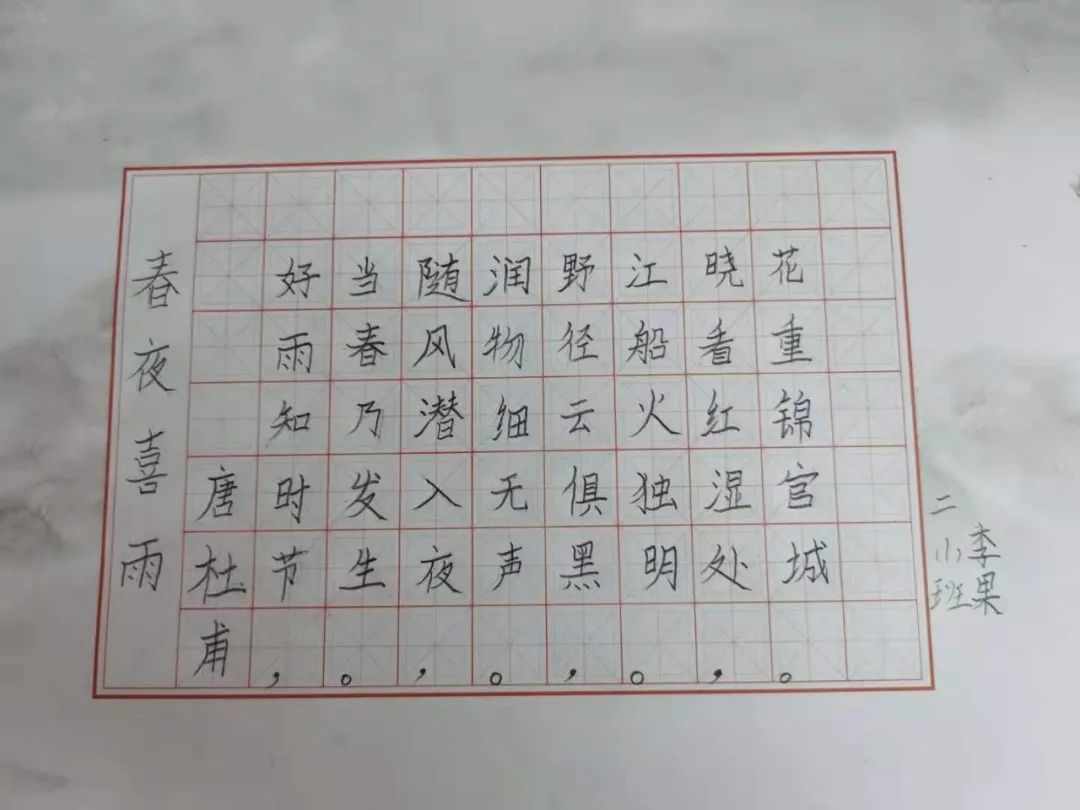 春夜喜雨
唐杜甫
好雨知时节，
当春乃发生。
随风潜入夜，
润物细无声。
野径云俱黑，
江船火独明。
晓看红湿处，
花重锦官城。
二小班
李果